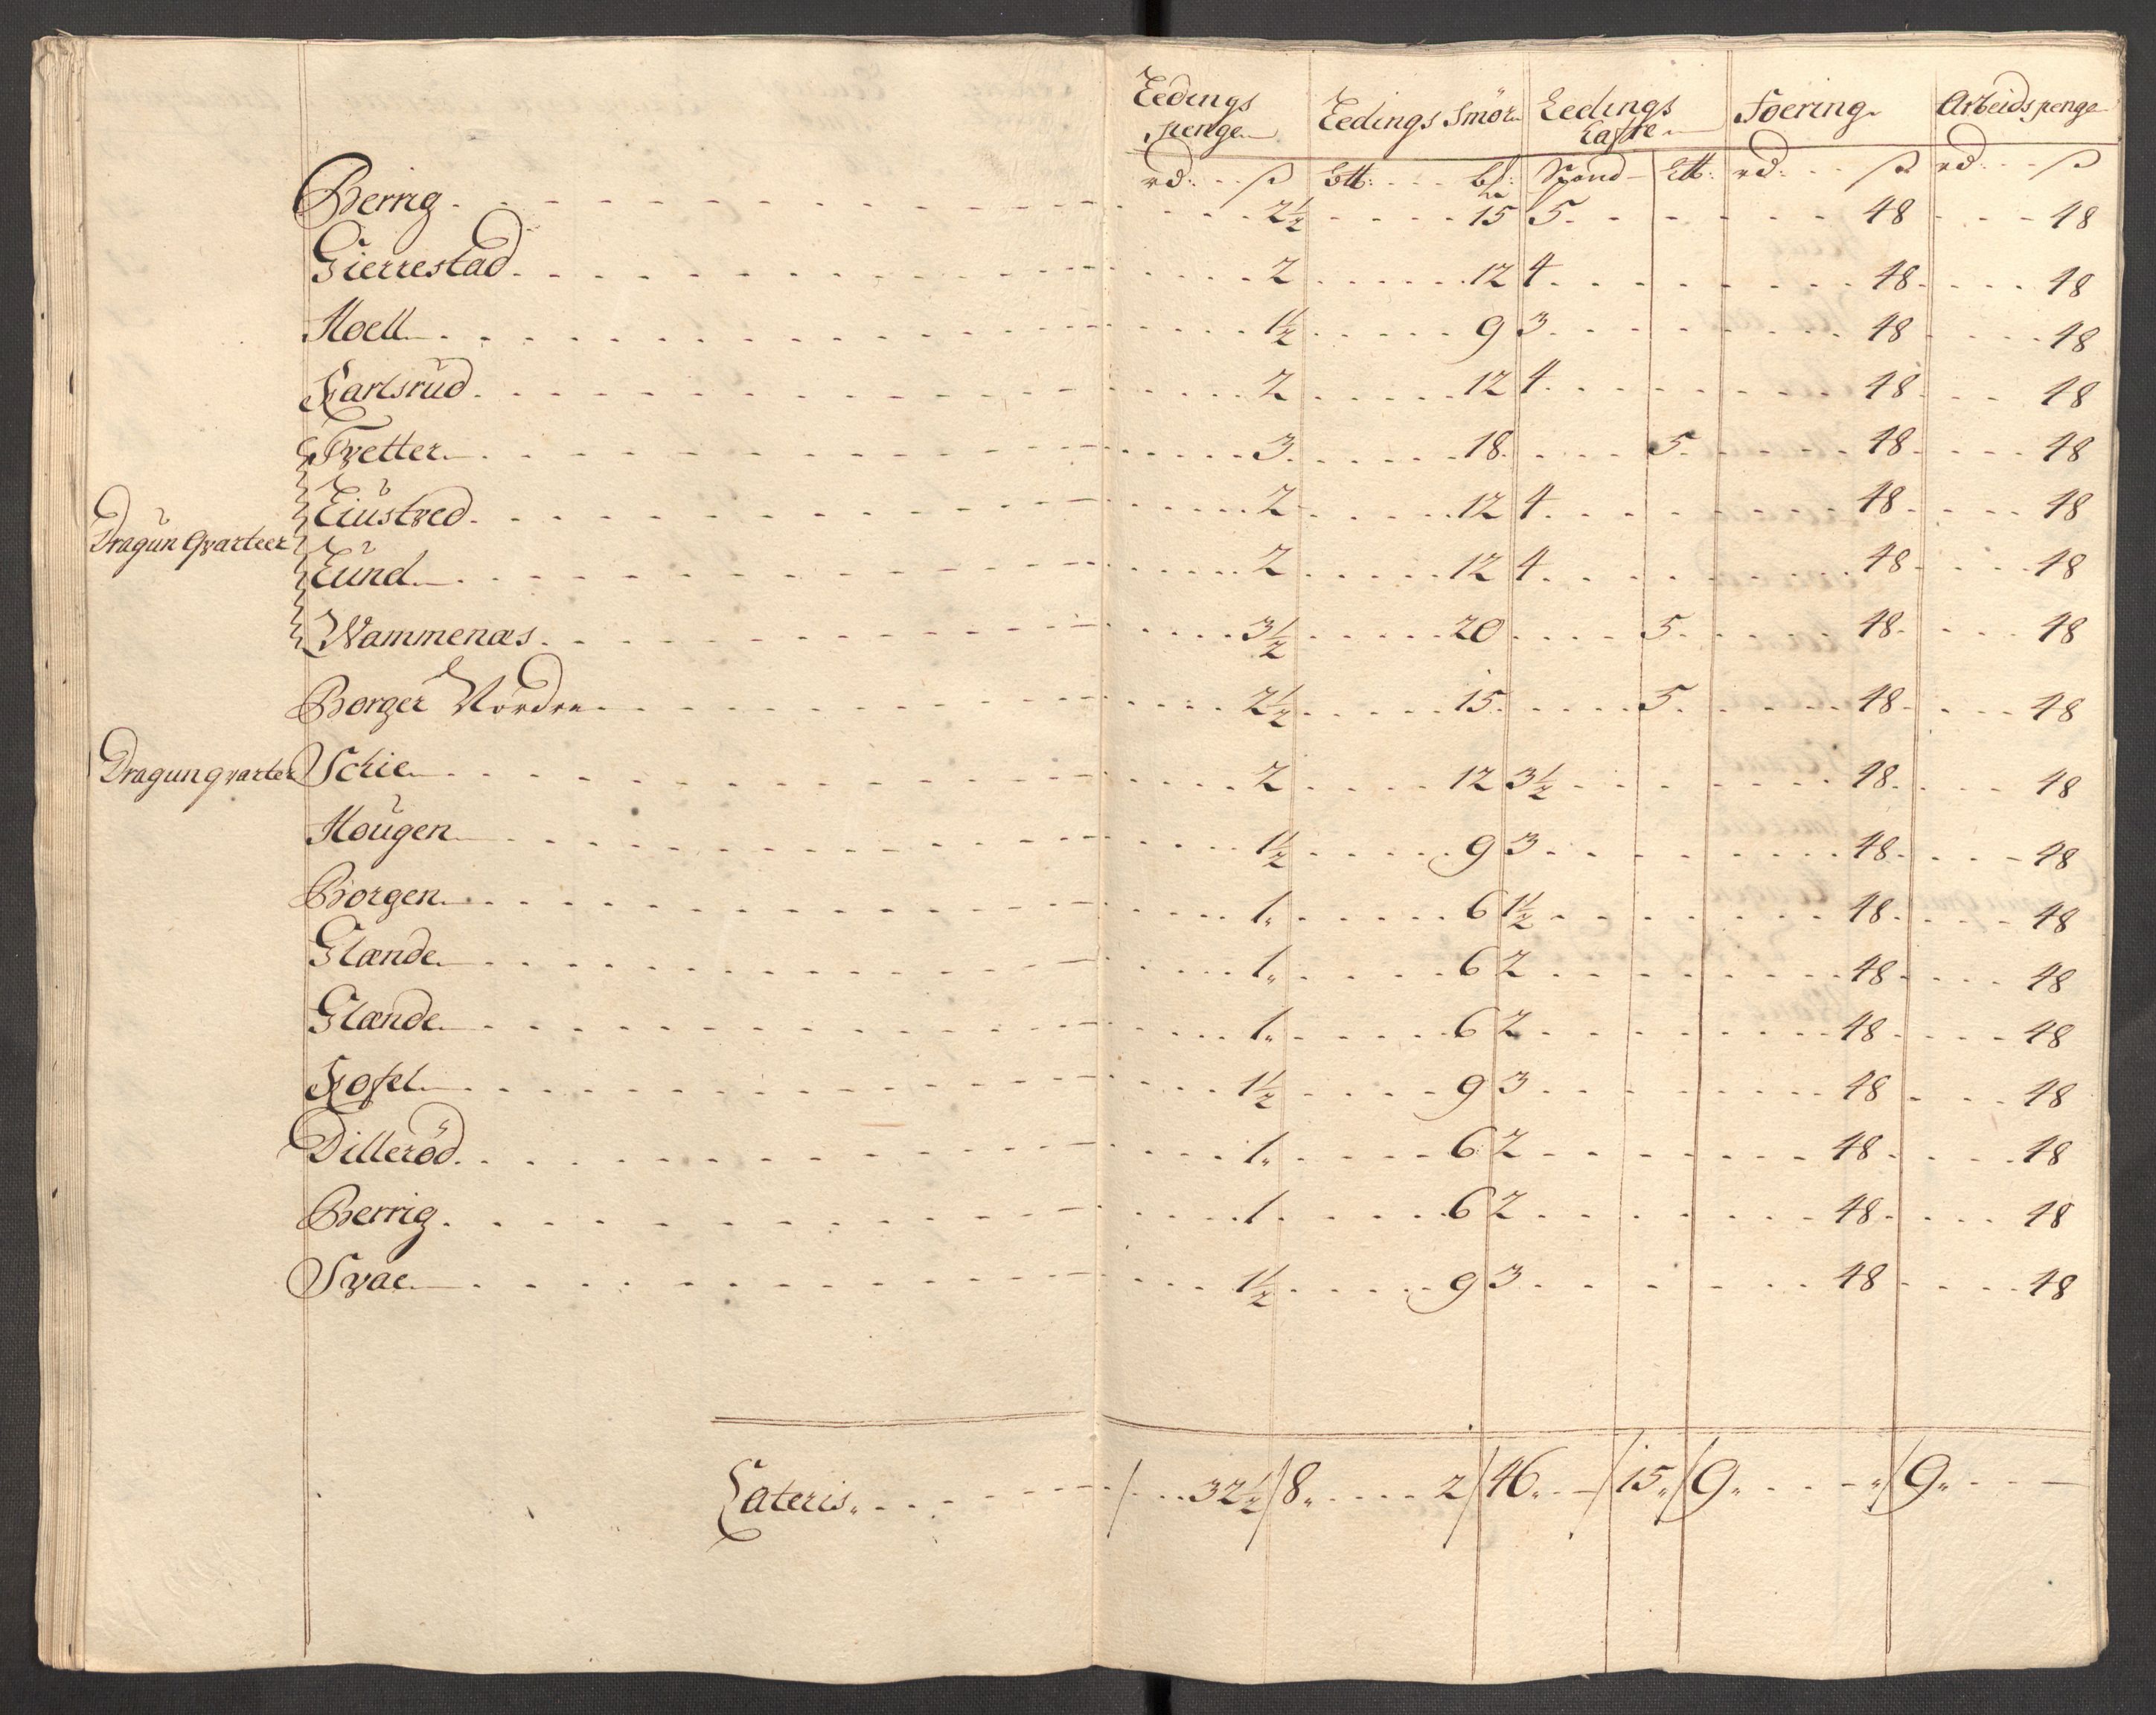 Leedings penge Leedings Smör Leedings Laste Foering Arbeidspenge
rd: ß Ltt: bl: Spand Ltt: rd: ß rd: ß
Berrig 2½ 15 5 48 48
Gierrestad 2 12 4 48 48
Hoell 1½ 9 3 48 48
Karlsrud 2 12 4 48 48
Tvetter 3 18 5 48 48
Liustved 2 12 4 48 48
Dragun Qvarteer
Lund 2 12 4 48 48
Wammenæs 3½ 20 5 48 48
Borger Nordre 2½ 15 5 48 48
Dragunqvarter Schie 2 12 3½ 48 48
Hougen 1½ 9 3 48 48
Borgen 1 6 1½ 48 48
Glænde 1 6 2 48 48
Glænde 1 6 2 48 48
Kofel 1½ 9 3 48 48
Dilleröd 1 6 2 48 48
Berrig 1 6 2 48 48
Svae 1½ 9 3 48 48
Lateris 32½ 8 2 46 15 9 9